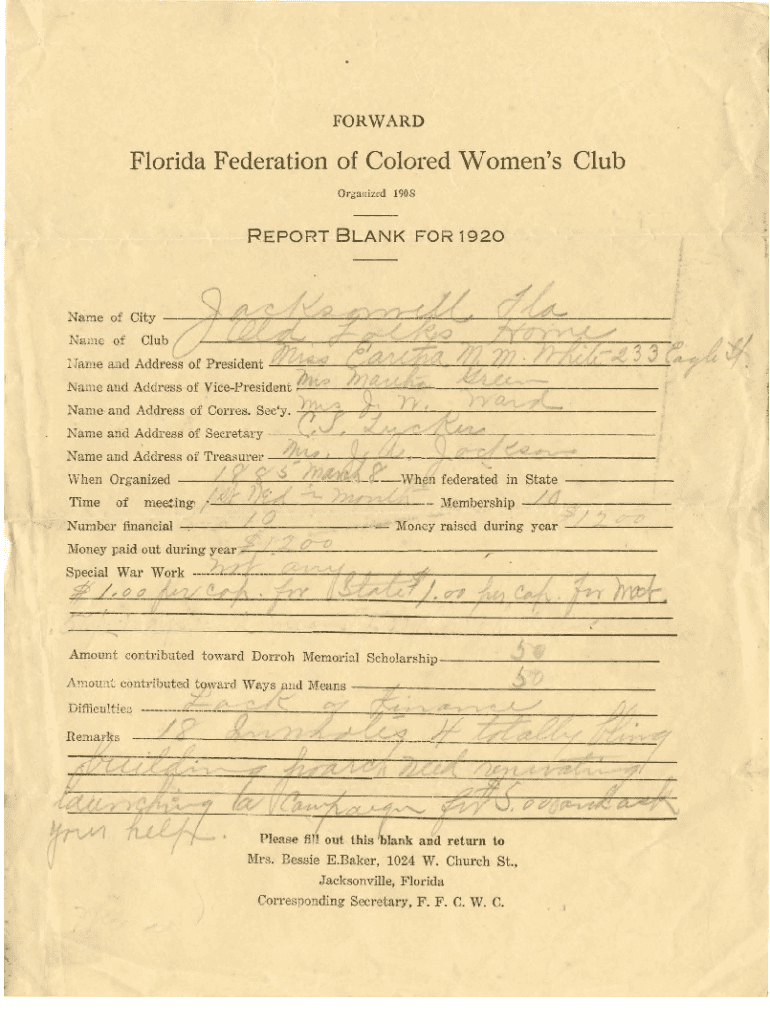 FORWARD
Florida Federation of Colored Women's Club
Organized 1908
REPORT BLANK FOR 1920
Name of City Jacksonvill Fla
Name of Club Old Folks Home
Name and Address of President Miss Eartha M. M. White 233 Eagle St.
Name and Address of Vice-President Mrs. Martha Green
Name and Address of Corres. Sec'y. Mrs J. W. Ward
Name and Address of Secretary C. S. Tucker
Name and Address of Treasurer Mrs. J. A. Jackson
When Organized 1885 March 8 When federated in State
Time of meeting 1st Wed in month Membership 10
Number financial 10 Money raised during year $1200
Money paid out during year $1200
Special War Work not any
$1.00 per cap. for State $1.00 per cap. for Nat.
Amount contributed toward Dorroh Memorial Scholarship 50
Amount contributed toward Ways and Means 50
Difficulties Lack of Finance
Remarks 18 4 totally bling
building poarch need renovating
launching a campaign for $5.00 and ask
your help.
Please fill out this blank and return to
Mrs. Bessie E.Baker, 1024 W. Church St.,
Jacksonville, Florida
Corresponding Secretary, F. F. C. W. C.